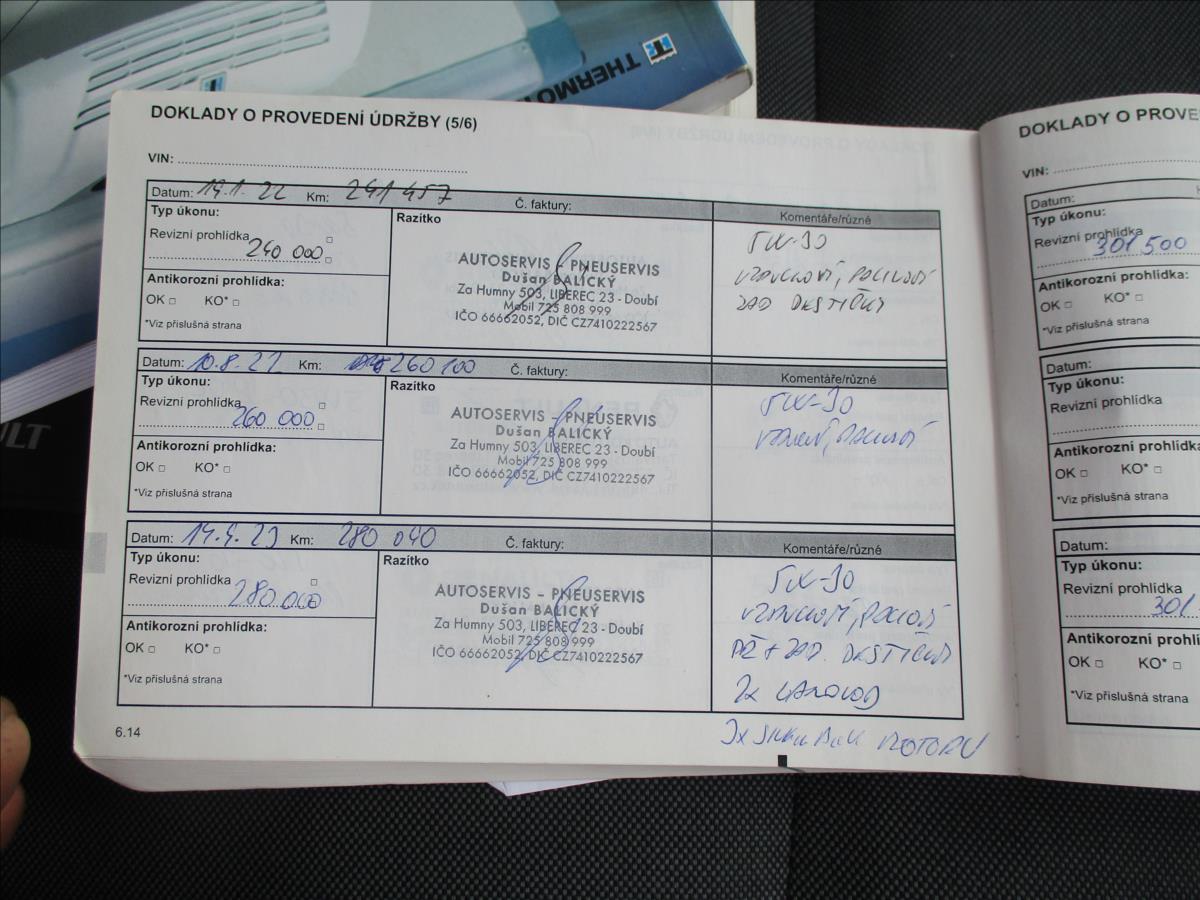 THERMO
DOKLADY O PROVEDENÍ ÚDRŽBY (5/6)
VIN:
Datum: 19.1. 22 Km: 241 457 Č. faktury:
Typ úkonu:
Revizní prohlídka
240 000
Antikorozní prohlídka:
OK □ KO* □
*Viz příslušná strana
Razítko
AUTOSERVIS - PNEUSERVIS
Dušan BALICKÝ
Za Humny 503, LIBEREC 23 - Doubí
Mobil 725 808 999
IČO 66662052, DIČ CZ7410222567
Komentáře/různé
5W-30
ZAD DESTIČKY
Datum: 10.8. 22 Km: 260 100 Č. faktury:
Typ úkonu:
Revizní prohlídka
260 000
Antikorozní prohlídka:
OK □ KO* □
*Viz příslušná strana
Razítko
AUTOSERVIS - PNEUSERVIS
Dušan BALICKÝ
Za Humny 503, LIBEREC 23 - Doubí
Mobil 725 808 999
IČO 66662052, DIČ CZ7410222567
Komentáře/různé
5W-30
Datum: 14.4. 23 Km: 280 040 Č. faktury:
Typ úkonu:
Revizní prohlídka
280 000
Antikorozní prohlídka:
OK □ KO* □
*Viz příslušná strana
Razítko
AUTOSERVIS - PNEUSERVIS
Dušan BALICKÝ
Za Humny 503, LIBEREC 23 - Doubí
Mobil 725 808 999
IČO 66662052, DIČ CZ7410222567
Komentáře/různé
5W-30
ZAD. DESTIČKY
MOTORU
6.14
DOKLADY O PROVE
VIN:
Datum:
Typ úkonu:
Revizní prohlídka
301 500
Antikorozní prohlídka:
OK □ KO* □
*Viz příslušná strana
Datum:
Typ úkonu:
Revizní prohlídka
Antikorozní prohlídka
OK □ KO* □
*Viz příslušná strana
Datum:
Typ úkonu:
Revizní prohlídka
301
Antikorozní prohlí
OK □ KO* □
*Viz příslušná strana